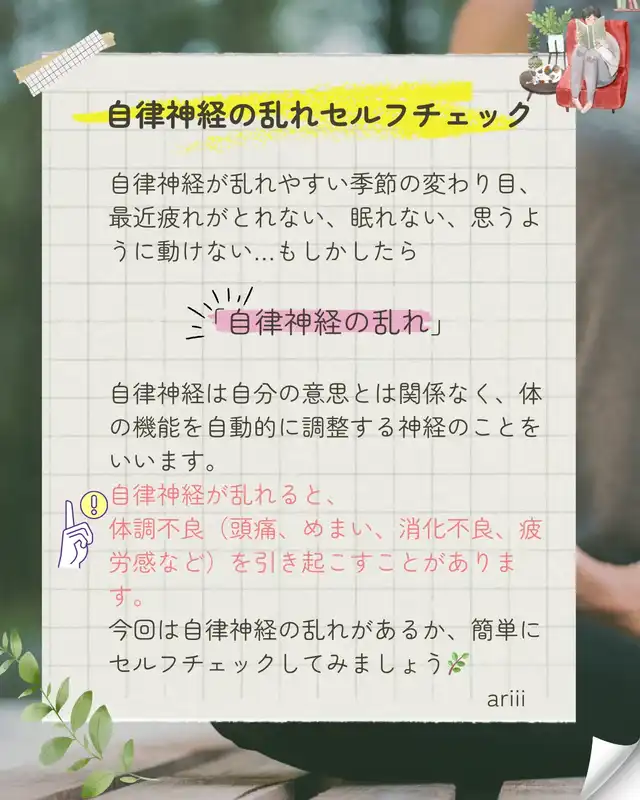 自律神経の乱れセルフチェック
自律神経が乱れやすい季節の変わり目、
最近疲れがとれない、眠れない、思うよ
うに動けない...もしかしたら
「自律神経の乱れ」
自律神経は自分の意思とは関係なく、体
の機能を自動的に調整する神経のことを
いいます。
自律神経が乱れると、
体調不良（頭痛、めまい、消化不良、疲
労感など）を引き起こすことがありま
す。
今回は自律神経の乱れがあるか、簡単に
セルフチェックしてみましょう🌿
ariii